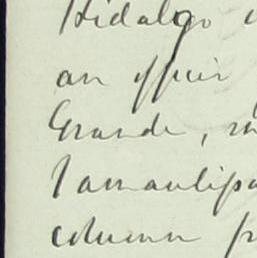 Hidalgo
an officer
Grande,
Tamaulipa
column